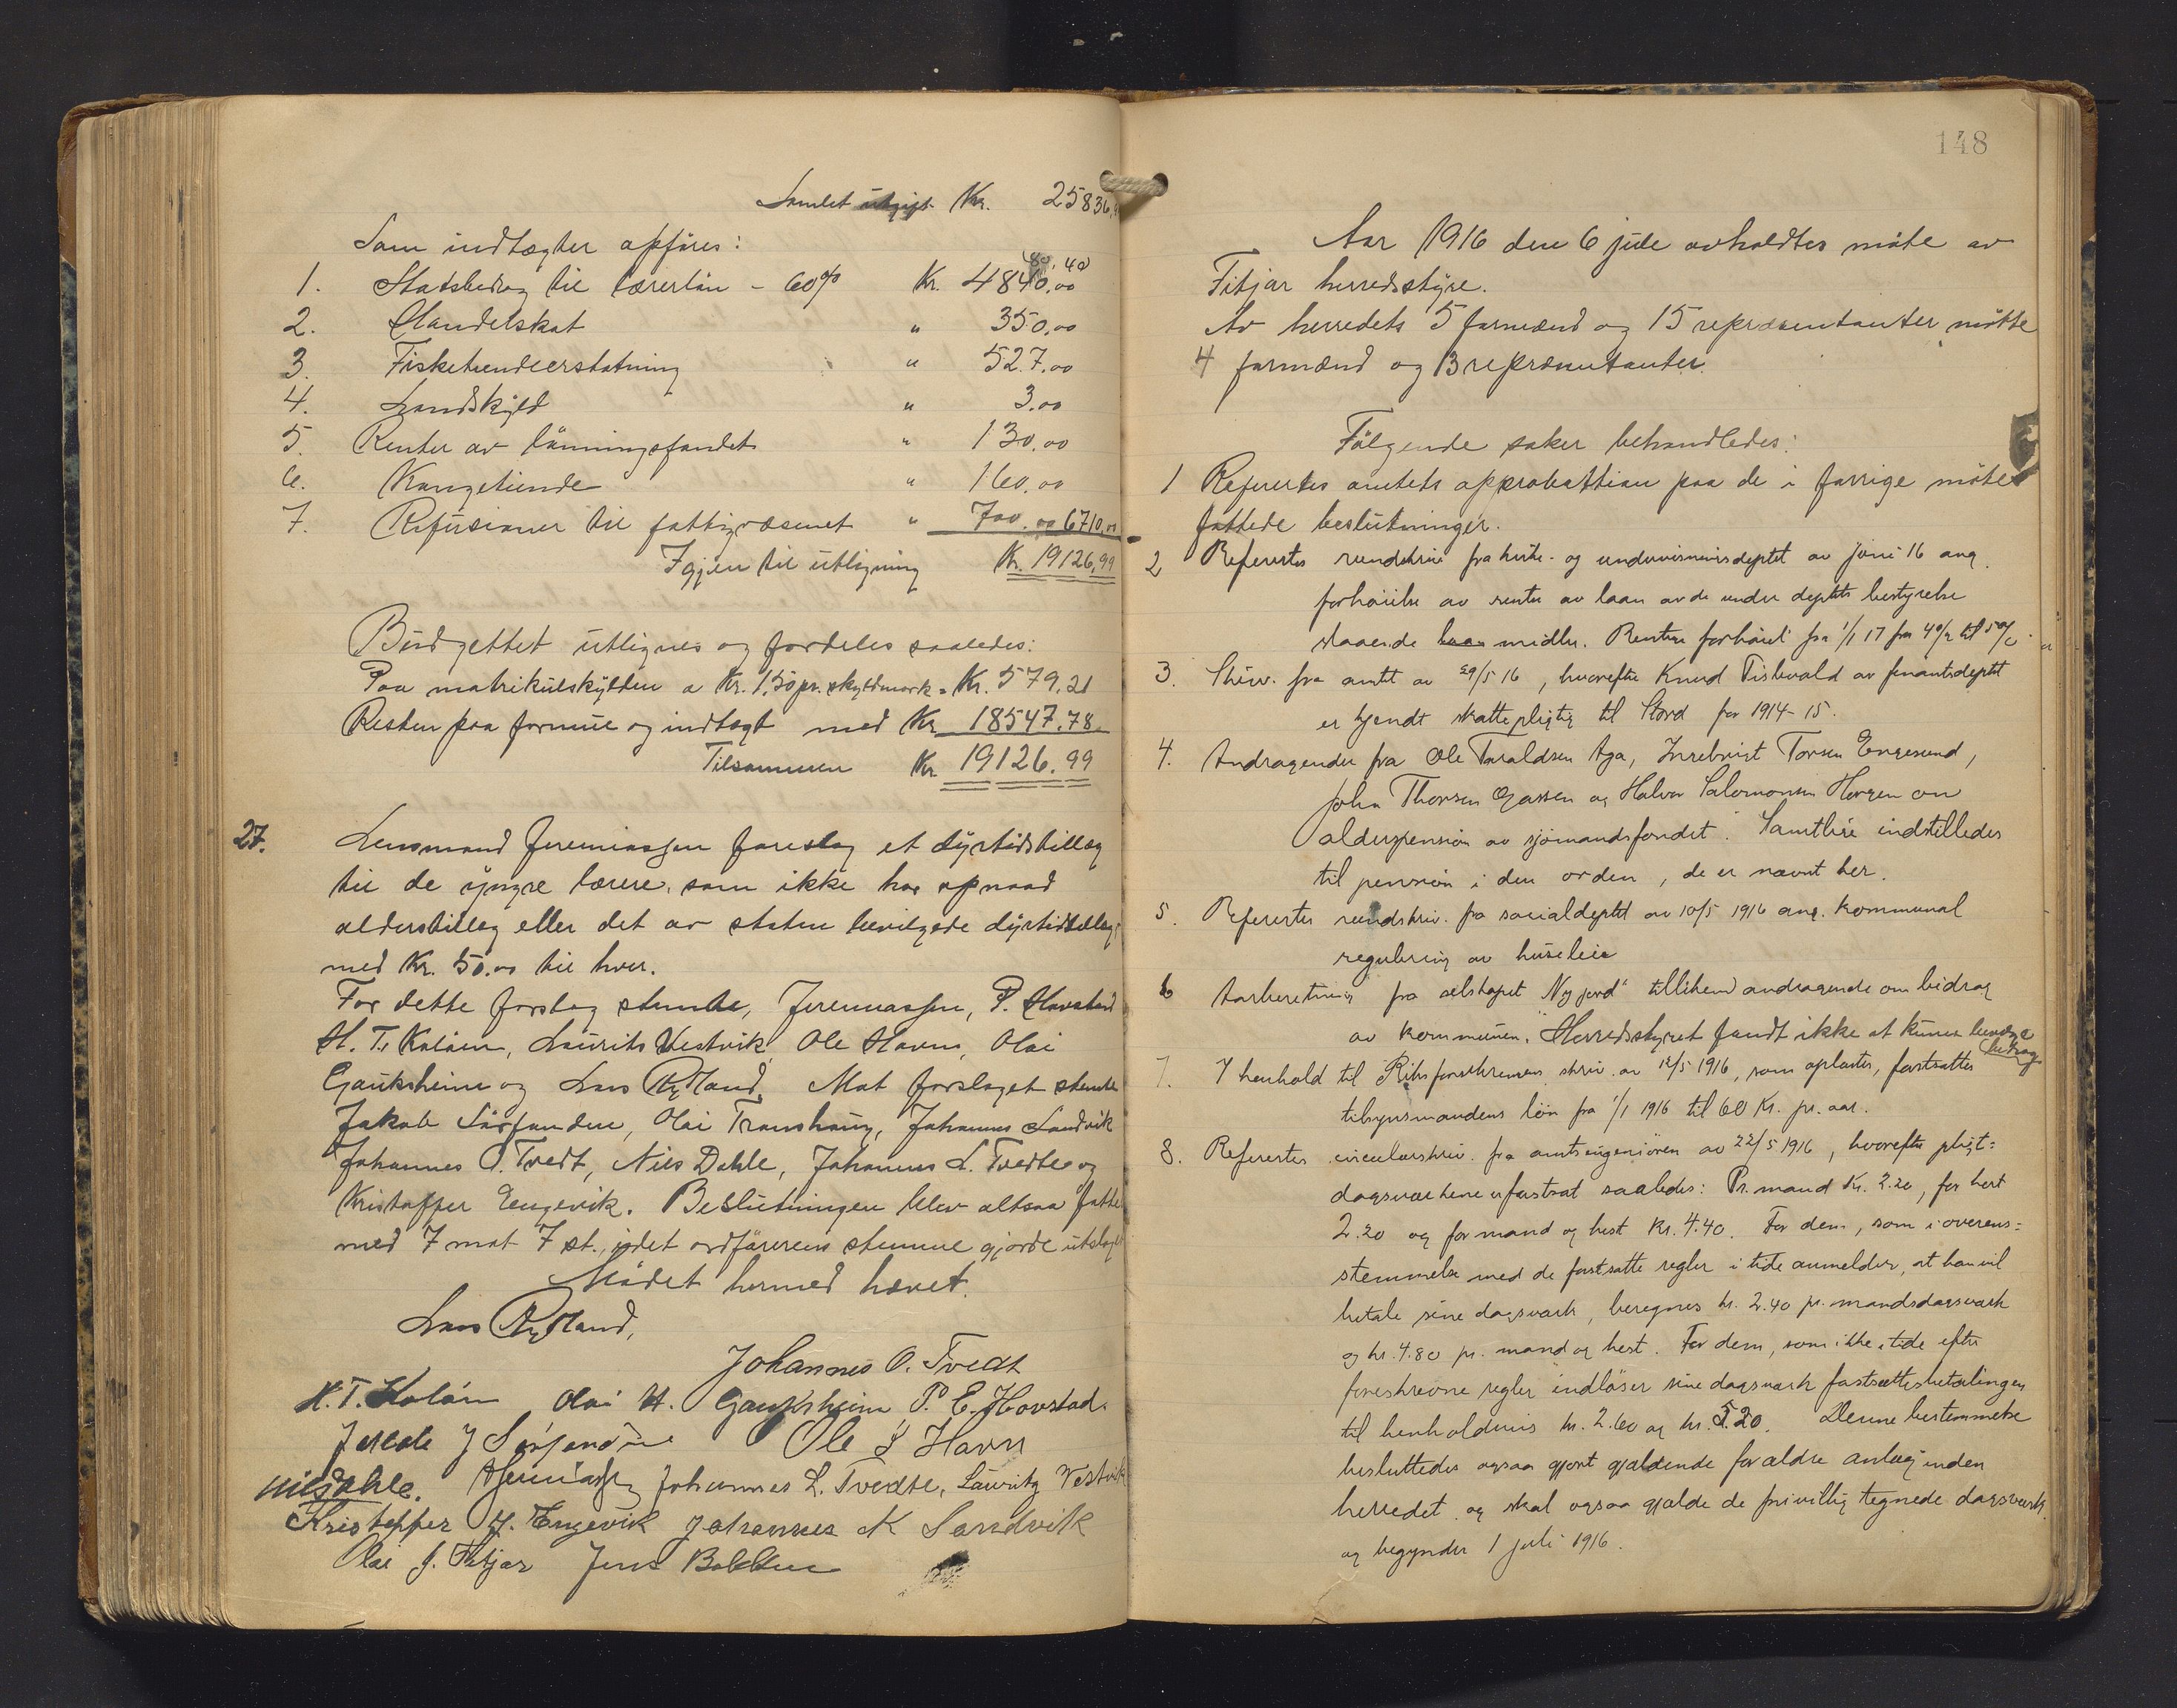 Samlet utgift Kr. 25836,
Som indtægter opføres:
1. Statsbidrag til lærerløn - 60% Kr. 4840,00 80,40
2. Handelskat " 350,00
3. Fisketiendeerstatning " 527,00
4. Landskyld " 3,00
5. Renter av lønningsfondet " 130,00
6. Kongetiende " 160,00
7. Refusioner til fattigvæsenet " 700,00 6710,00
Igjen til utligning Kr. 19126,99
Budgettet utlignes og fordeles saaledes:
Paa matrikulskylden a Kr. 1,50 pr. skyldmark = Kr. 579,21
Resten paa formue og indtægt med Kr 18547,78
Tilsammen Kr 19126,99
27. Lensmand Jeremiassen foreslog et dyrtidstillæg
til de yngre lærere, som ikke har opnaad
alderstillæg eller det av staten bevilgede dyrtidstillæg
med Kr. 50,00 til hver.
For dette forslag stemte, Jeremiassen, P. Havstad
H. T. Koløen, Laurits Vestvik, Ole Havn, Olai
Gauksheim og Lars Rydland. Mot forslaget stemte
Jakob Sørfonden, Olai Transhaug, Johannes Sandvik
Johannes O. Tvedt, Nils Dahle, Johannes L. Tvedte og
Kristoffer Engevik. Beslutningen blev altsaa fattet
med 7 mot 7 st., idet ordførerens stemme gjorde utslaget
Mødet hermed hævet.
Lars Rydland,
Johannes O. Tvedt
H. T. Koløen Olai H. Gauksheim P. E. Hovstad.
Jakob J Sørfonden Ole S Havn
Nils Dahle. Jeremiassen Johannes L. Tvedte, Lauritz Vestvik
Kristoffer H. Engevik Johannes K Sandvik
Olai J. Fitjar Jens Bakken
148
Aar 1916 den 6 jule avholdtes møte av
Fitjar herredsstyre.
Av herredets 5 formænd og 15 repræsentanter møtte
4 formænd og 13 repræsentanter.
Følgende saker behandledes:
1 Refertes amtets approbattion paa de i forrige møte
fattede beslutninger.
2 Refertes rundskriv fra kirke- og undervisninisdeptet av juni 16 ang.
forhøielse av rente av laan av de under deptets bestyrelse
staaende laan midler. Renten forhøiet fra 1/1 17 fra 4% til 5%
3. Skriv. fra amtet av 29/5 16, hvorefter Knud Tislevald av finantsdeptet
er kjendt skattepligtig til Stord for 1914-15.
4. Andragender fra Ole Taraldsen Aga, Inrebrigt Torsen Engesund,
John Thorsen Gjøssen og Halvor Salomonsen Horgen om
alderspension av sjømandsfondet. Samtlige indstilledes
til pension i den orden, de er nævnt her.
5. Refertes rundskriv. fra socialdeptet av 10/5 1916 ang. kommunal
regulering av huseleie
6 Aarberetning fra selskapet "Ny jord" tillikemed andragende om bidrag
av kommunen. Herredsstyret fandt ikke at kunne bevilge
bidrag
7. I henhold til Riksforsikringens skriv. av 12/5 1916, som oplæstes, fastsattes
tilsynsmandens løn fra 1/1 1916 til 60 Kr. pr. aar.
8. Refertes circulærskriv. fra amtsingeniøren av 22/5 1916, hvorefter pligt=
dagsværkene er fastsat saaledes: Pr. mand Kr. 2.20, for hest
2.20 og for mand og hest Kr. 4.40. For dem, som i overens=
stemmelse med de fastsatte regler i tide anmelder, at han vil
betale sine dagsværk, beregnes kr. 2.40 pr. mandsdagsværk
og kr. 4.80 pr. mand og hest. For dem, som ikke i tide efter
foreskrevne regler indløser sine dagsværk fastsættes betalingen
til henholdsvis kr. 2.60 og kr. 5.20. Denne bestemmelse
besluttedes ogsaa gjort gjældende for ældre anlæg inden
herredet og skal ogsaa gjælde de frivillig tegnede dagsværk.
og begynder 1 juli 1916.